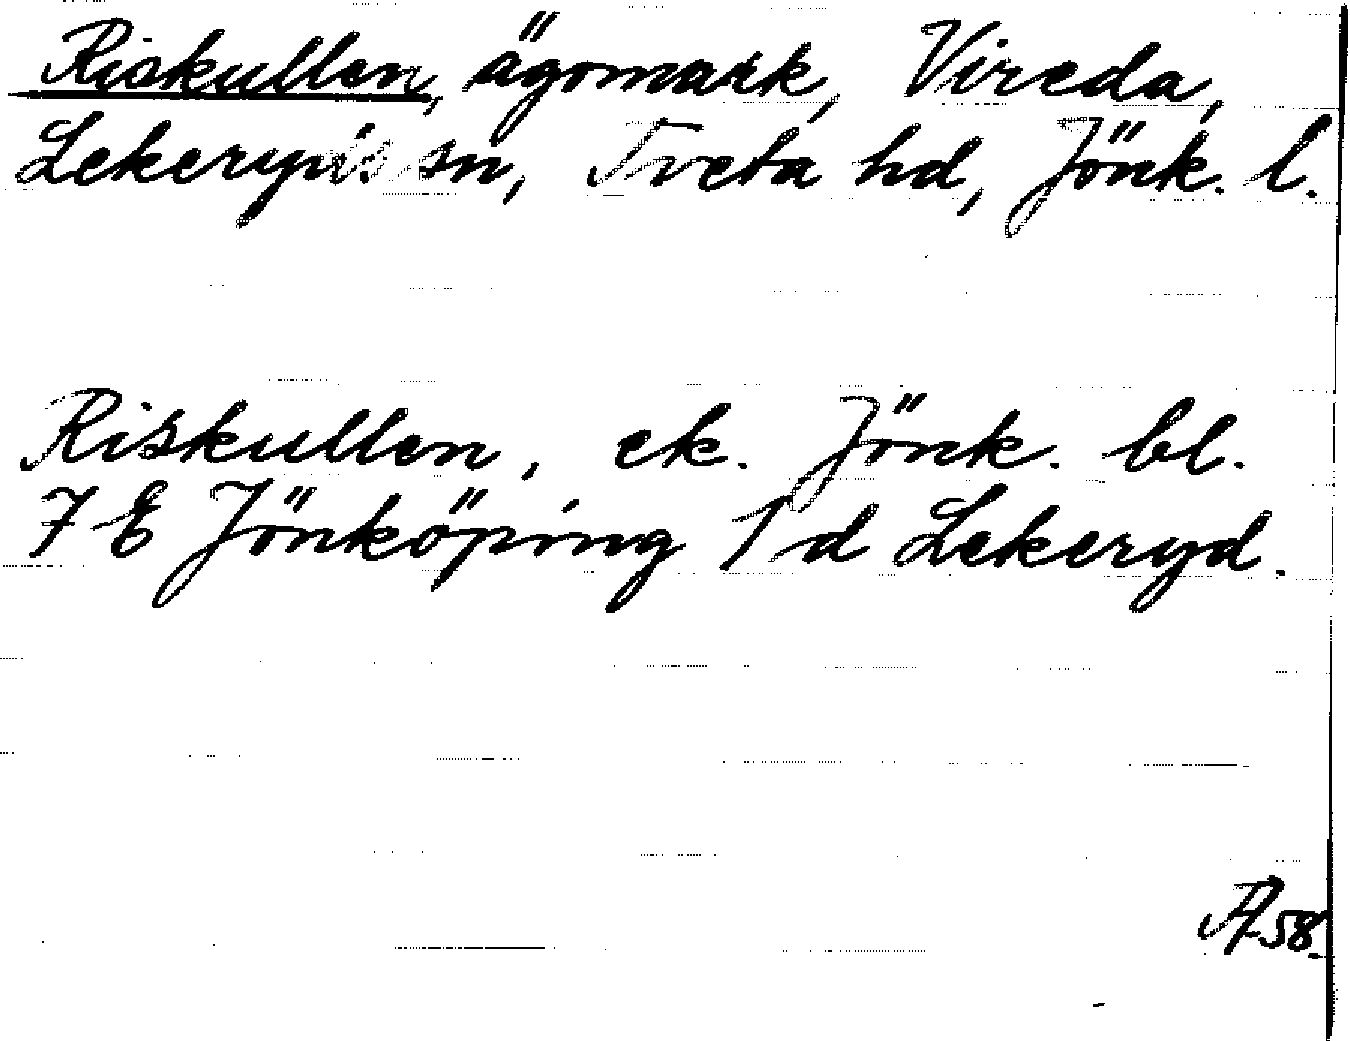 Riskullen, ägomark, Vireda,
Lekeryds sn, Tveta hd, Jönk. l.
Riskullen, ek. Jönk. bl.
7 E Jönköping 1 d Lekeryd.
58.